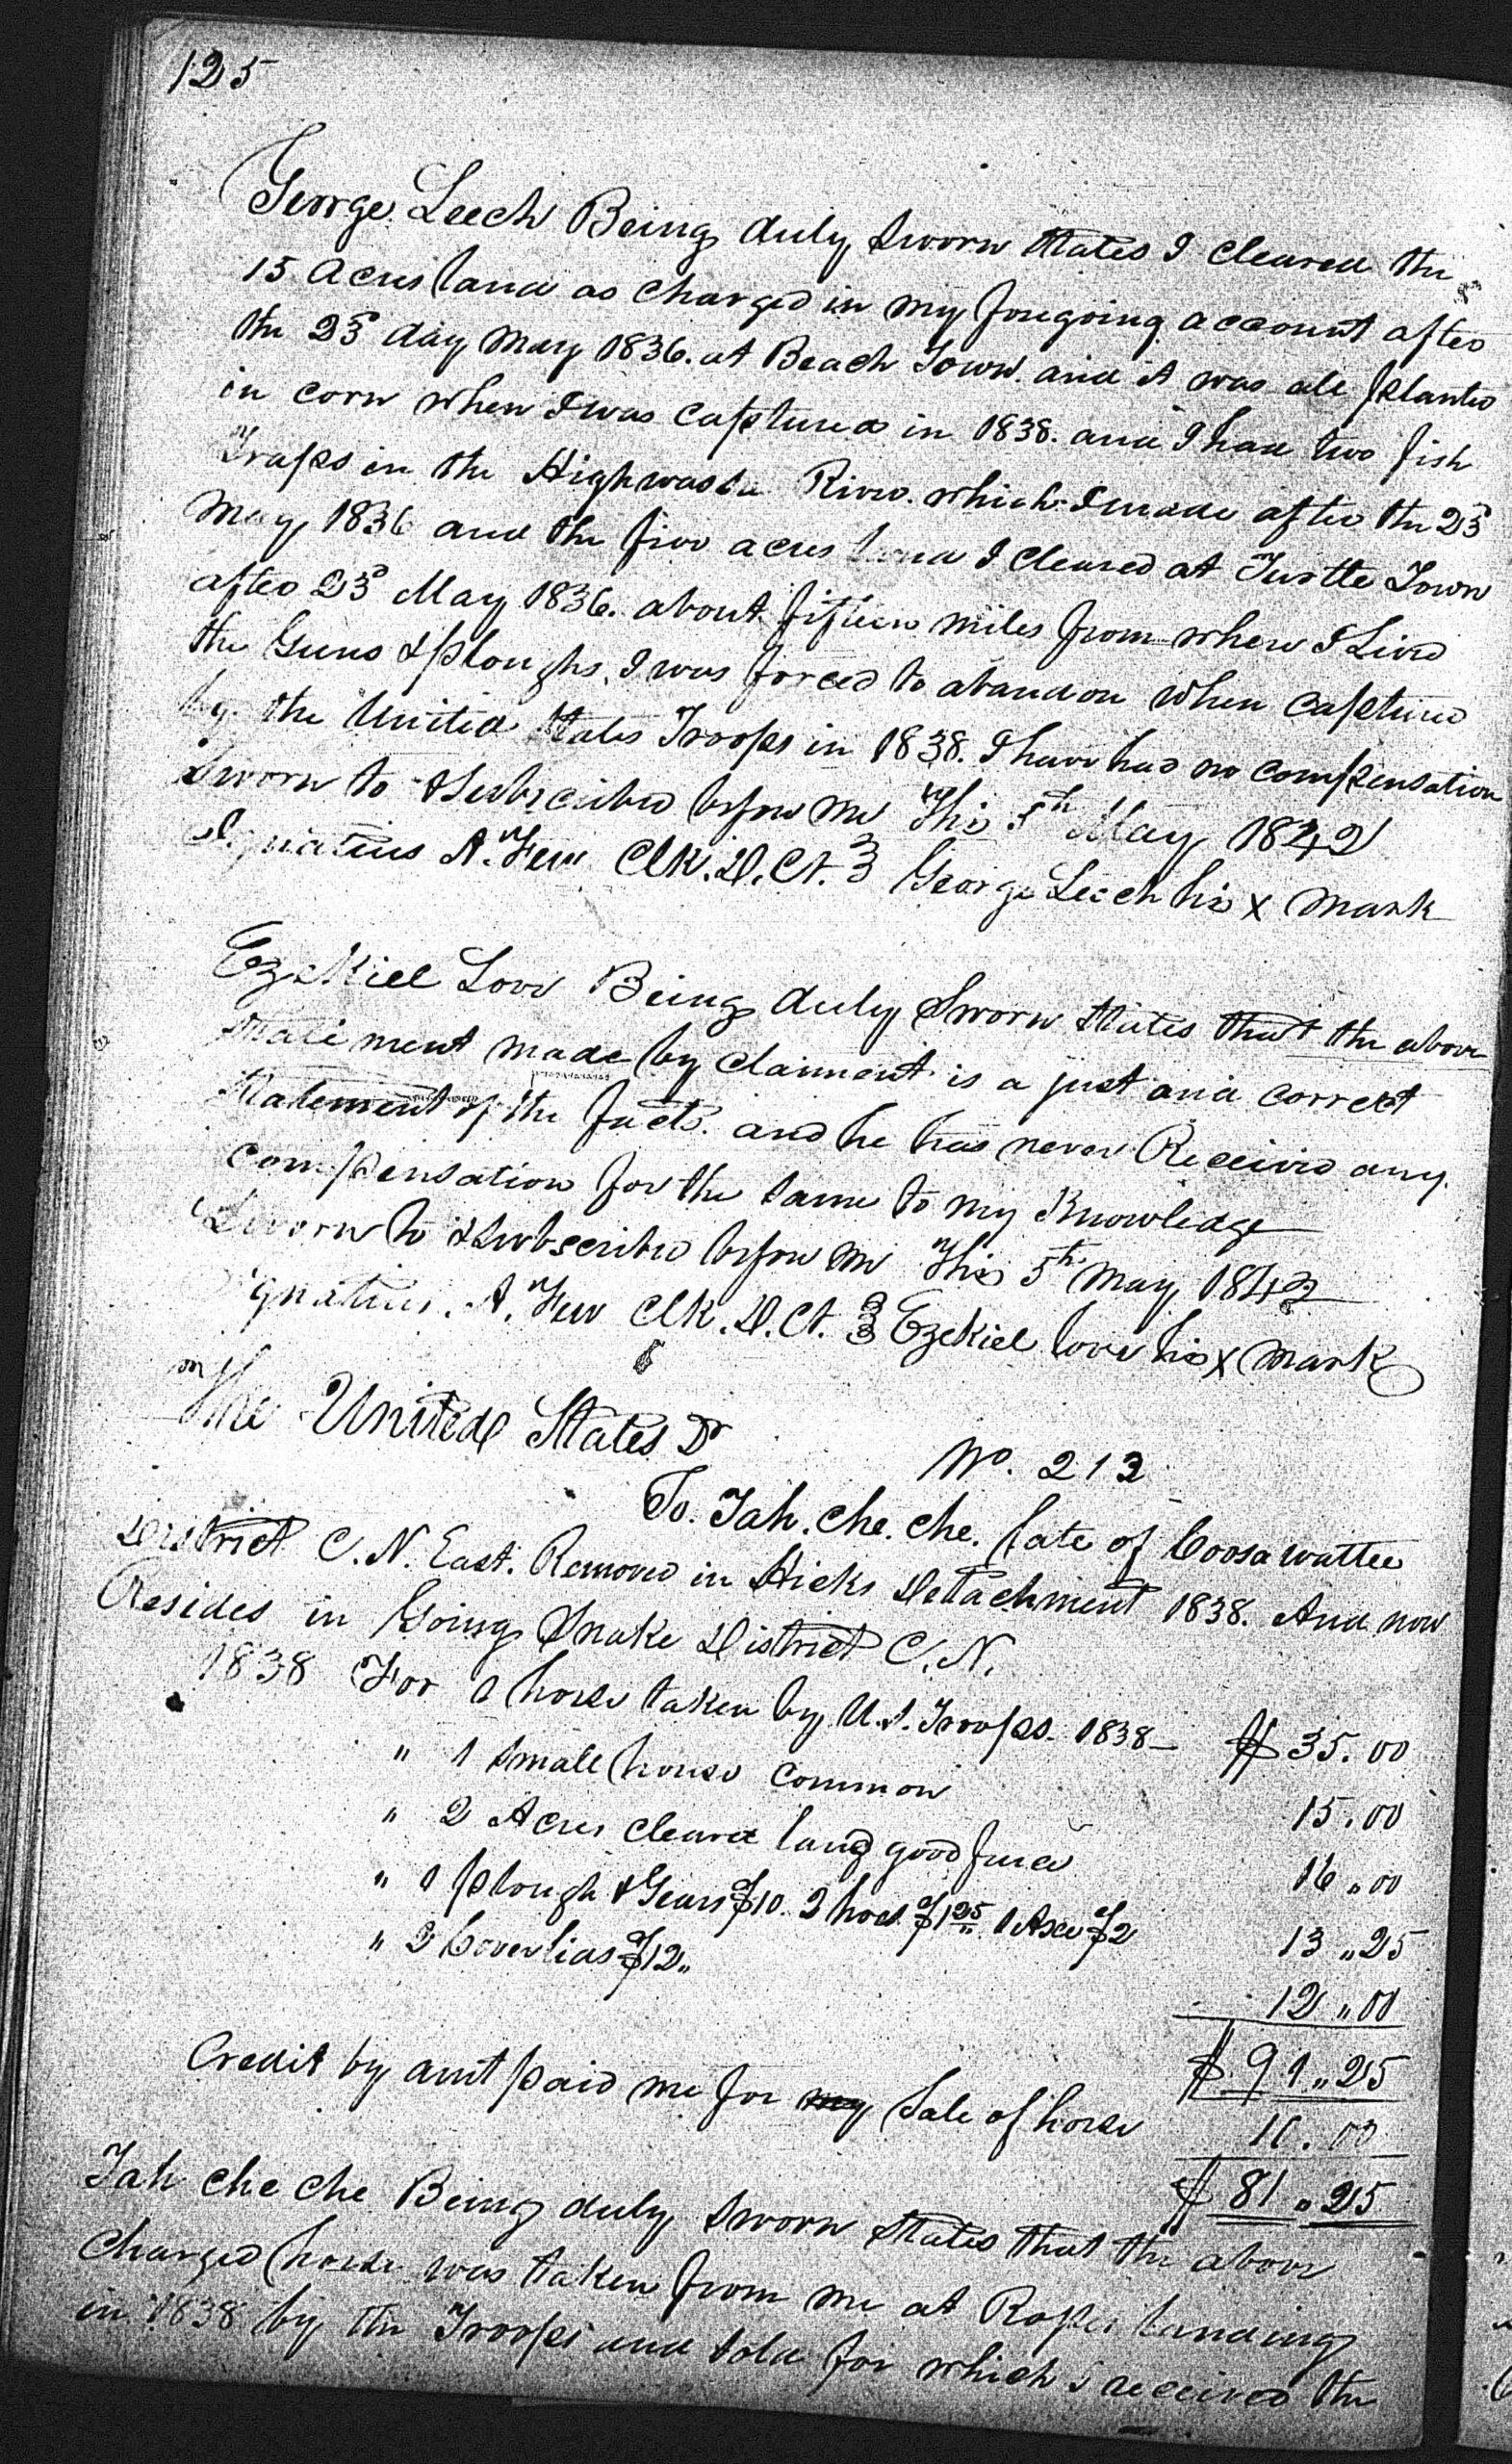 125
George Leech Being duly sworn states I cleared the
15 Acres land as charged in my foregoing account after
the 23d day May 1836. at Beach Town. and it was all planted
in corn when I was captured in 1838. and I had two fish
Traps in the Highwassa River. which I made after the 23d
May 1836 and the five acres land I cleared at Turtle Town
after 23d May 1836. about fifteen miles from where I Lived
the Guns & ploughs. I was forced to abandon when captured
by the United States Troops in 1838. I have had no compensation
Sworn to & Subscribed before me This 5th May 1842
Ignatius A. Few Clk. D. Ct. } George Leech his x mark
Ezekiel Love Being duly Sworn states that the above
statement made by claiment is a just and correct
statement of the facts. and he has never Received any
compensation for the same to my Knowledge
Sworn to & subscribed before me This 5th May 1842
Ignatius. A. Few Clk. D. Ct. } Ezekiel love his x mark
The United States Dr
No. 213
To. Tah. che. che. late of Coosawattee
District C. N. East. Removed in Hicks Detachment 1838. And now
Resides in Going Snake District C. N.
1838 For 1 horse taken by U.S. Troops. 1838 — $ 35.00
" 1 small house common 15.00
" 2 Acres cleared land good fence 16 " 00
" 1 plough & Gears $10. 2 hoes $1 25 1 Axe $2 13 " 25
" 2 Coverlids $12 " 12 " 00
$ 91 " 25
Credit by amt paid me for my Sale of horse 10.00
$ 81 " 25
Tah che che Being duly sworn states that the above
charged horse was taken from me at Ross's landing
in 1838 by the Troops and sold for which I received the